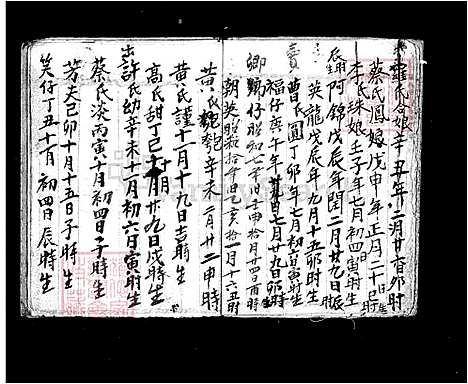 羅氏合娘辛丑年二月廿日卯時
蔡氏鳳娘戊申年正月二十日巳時生
李氏珠娘壬子年七月初四寅時生
阿錦戊辰年閏二月廿九日辰
英龍戊辰年九月十五卯時生
曹氏圓丁卯年七月初寅時生
福仔庚午年七月廿九日卯時
卿鶴仔昭和七年壬申拾月廿四日酉時
朝英昭和拾年旧乙亥拾一月十六丑時
黃氏 辛未二月廿二申時
黃氏謹十一月十九日吉時生
高氏甜丁巳十月廿九日戌時生
出許氏幼辛未十一月初六日寅時生
蔡氏淡丙寅十月初四日子時生
芳夫己卯十月十五日子時生
笑仔丁丑十一月初四日辰時生